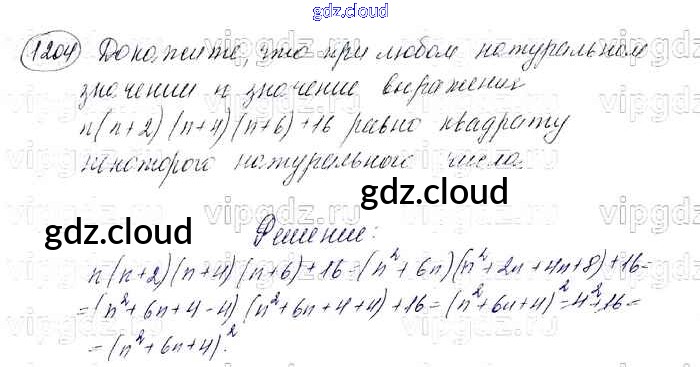 gdz.cloud
1204 Докажите, что при любом натуральном
значении n значение выражения
n(n+2)(n+4)(n+6)+16 равно квадрату
некоторого натурального числа.
gdz.cloud
gdz.cloud
Решение:
n(n+2)(n+4)(n+6)+16=(n²+6n)(n²+2n+4n+8)+16=
=(n²+6n+4-4)(n²+6n+4+4)+16=(n²+6n+4)²-4²+16=
=(n²+6n+4)².